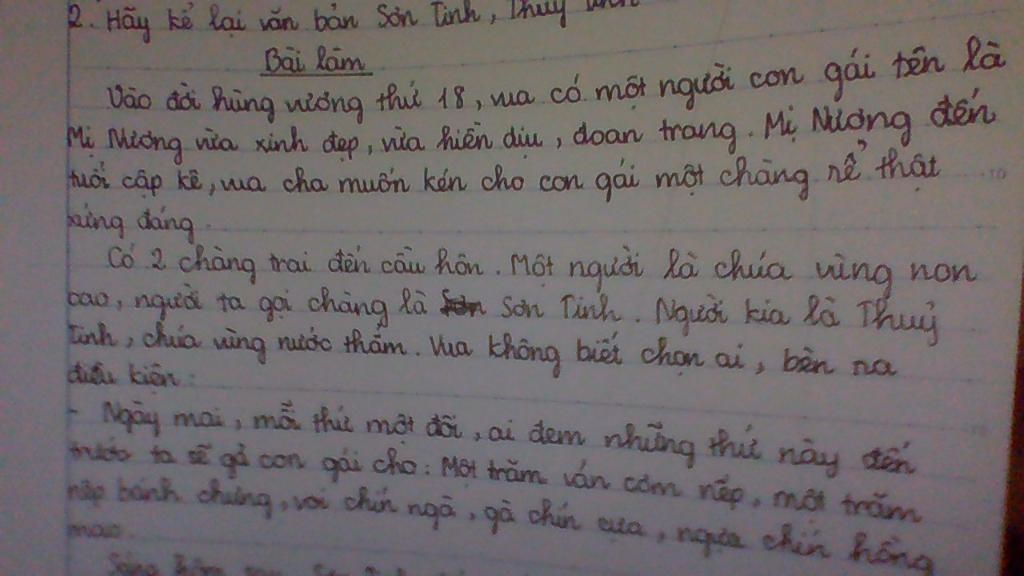 2. Hãy kể lại văn bản Sơn Tinh, Thuỷ Tinh
Bài làm
Vào đời hùng vương thứ 18, vua có một người con gái tên là
Mị Nương vừa xinh đẹp, vừa hiền dịu, đoan trang. Mị Nương đến
tuổi cập kê, vua cha muốn kén cho con gái một chàng rể thật
xứng đáng.
Có 2 chàng trai đến cầu hôn. Một người là chúa vùng non
cao, người ta gọi chàng là Sơn Tinh. Người kia là Thuỷ
Tinh, chúa vùng nước thẳm. Vua không biết chọn ai, bèn ra
điều kiện:
- Ngày mai, mỗi thứ một đôi, ai đem những thứ này đến
trước ta sẽ gả con gái cho: Một trăm ván cơm nếp, một trăm
nệp bánh chưng, voi chín ngà, gà chín cựa, ngựa chín hồng
mao.